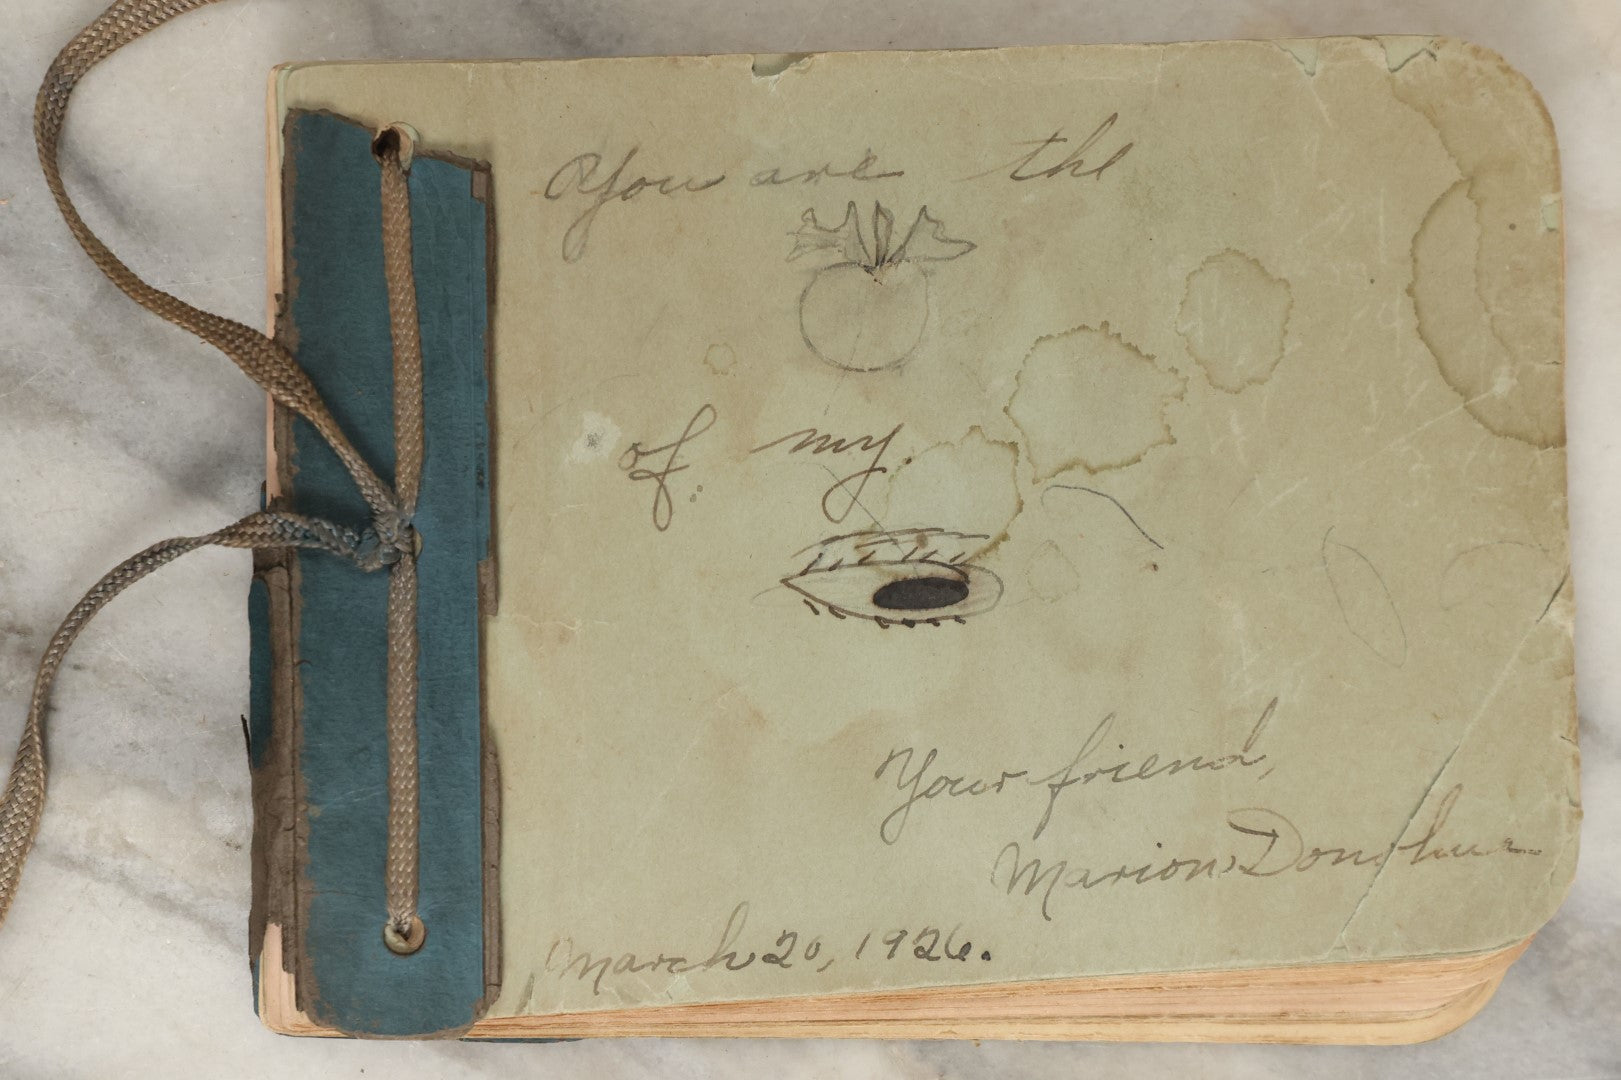 You are the
of my.
Your friend,
Marion Donohue
March 20, 1926.